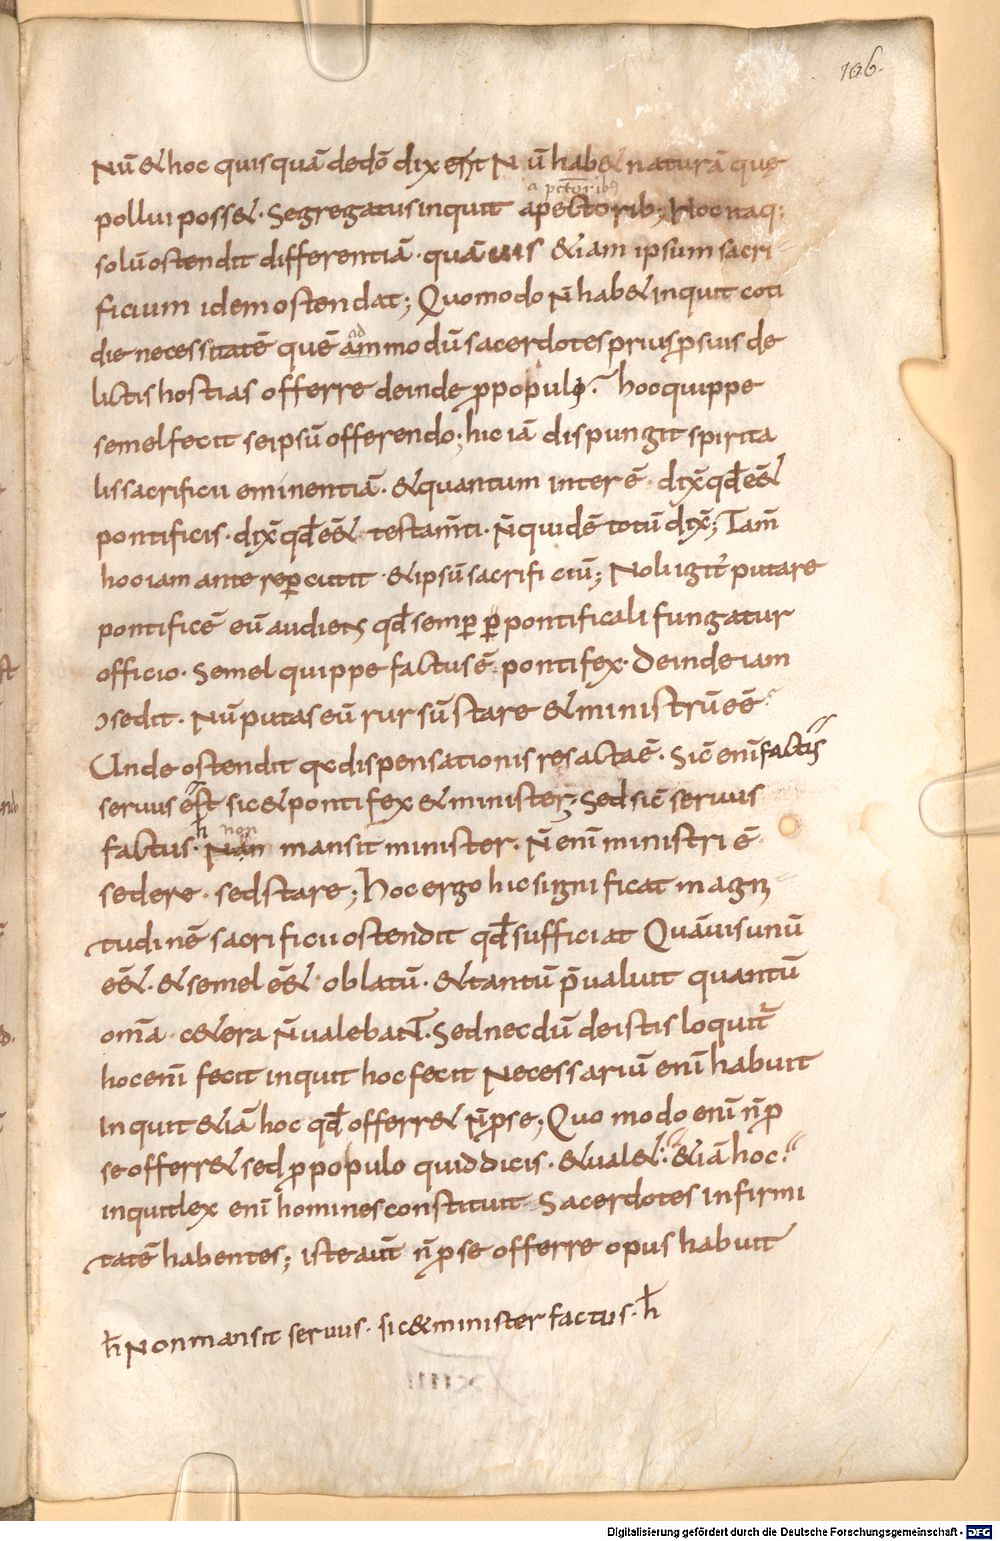 106.
Nū & hoc quisquā dedō dixerit Nū hab& naturā que
pollui poss&. Segregatus inquit a peccatorib; Hoc itaq;
solū ostendit differentiā. quāuis &iam ipsum sacri-
ficium idem ostendat; Quomodo n̄ hab& inquit coti
die necessitatē quē ad modū sacerdotes prius ꝓ suis de
lictis hostias offerre deinde ꝓ populo? hoc quippe
semel fecit seipsū offerendo; hic iā dispungit spirita
lis sacrificii eminentiā. & quantum inter ē. dix̄ qđ eē&
pontificis. dix̄ qđ eē& testam̄ti. n̄ quidē totū dix̄; Tam̄
hoc iam ante reꝑcutit & ipsū sacrificiū; Noli igit̄ putare
pontificē eū audiens qđ semꝑ ꝑ pontificali fungatur
officio. Semel quippe factus ē pontifex. Deinde iam
ɔsedit. Nū putas eū rursū stare & ministrū eē?
Unde ostendit qđ dispensationis res acta ē. Sic̄ enī factus
seruus est sic & pontifex & minister; Sed sic̄ seruus
factus. ħ non mansit minister. N̄ enī ministri ē
sedere. sed stare; Hoc ergo hic significat magni-
tudinē sacrificii ostendit qđ sufficiat Quāuis unū
eē&. & semel eē& oblatū. & tantū p̄ualuit quantū
om̄a c&era n̄ ualebant. Sed necdū de istis loquit̄
hoc enī fecit inquit hoc fecit Necessariū enī habuit
Inquit &iā hoc qđ offerr& n̄ ꝓ se; Quo modo enī n̄ ꝓ
se offerr& sed ꝓ populo quid dicis. & ual& &iā hoc?
inquit lex enī homines constituit Sacerdotes infirmi
tatē habentes; iste aūt n̄ ꝓ se offerre opus habuit
ħ Non mansit seruus. sic & minister factus. ħ
Digitalisierung gefördert durch die Deutsche Forschungsgemeinschaft - DFG